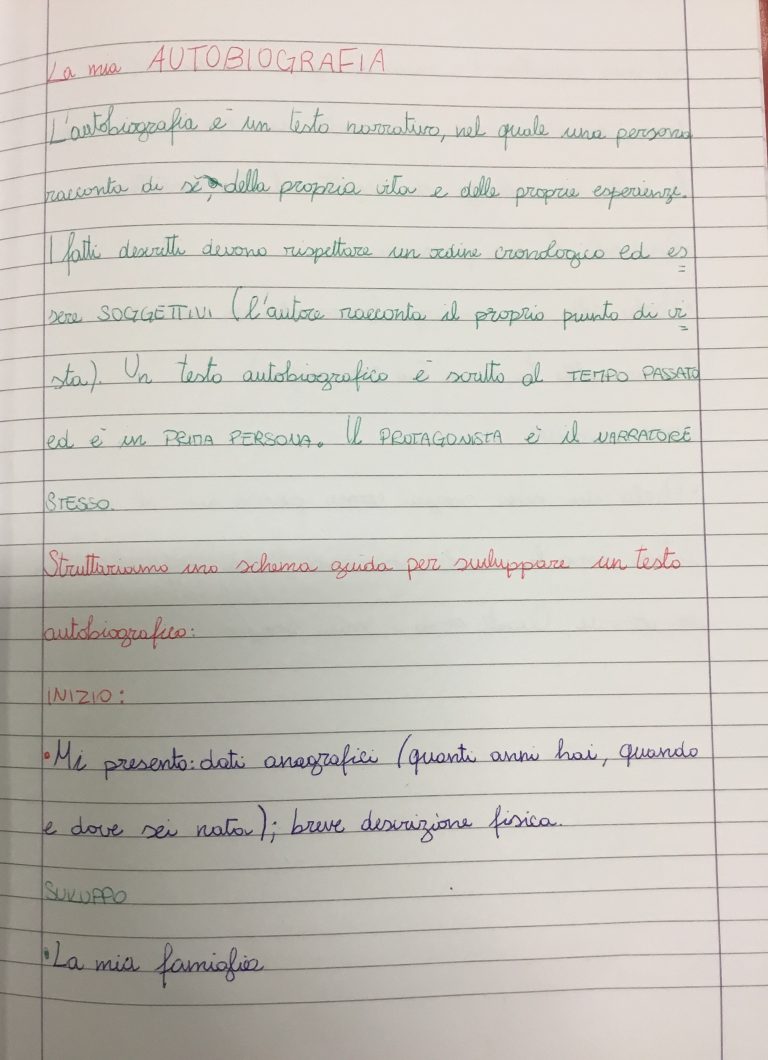 La mia AUTOBIOGRAFIA
L'autobiografia è un testo narrativo, nel quale una persona
racconta di sè, della propria vita e delle proprie esperienze.
I fatti descritti devono rispettare un ordine cronologico ed es
sere SOGGETTIVI (l'autore racconta il proprio punto di vi
sta). Un testo autobiografico è scritto al TEMPO PASSATO
ed è in PRIMA PERSONA. Il PROTAGONISTA è il NARRATORE
STESSO.
Strutturiamo uno schema guida per sviluppare un testo
autobiografico:
INIZIO:
•Mi presento: dati anagrafici (quanti anni hai, quando
e dove sei nata); breve descrizione fisica.
SVILUPPO
•La mia famiglia